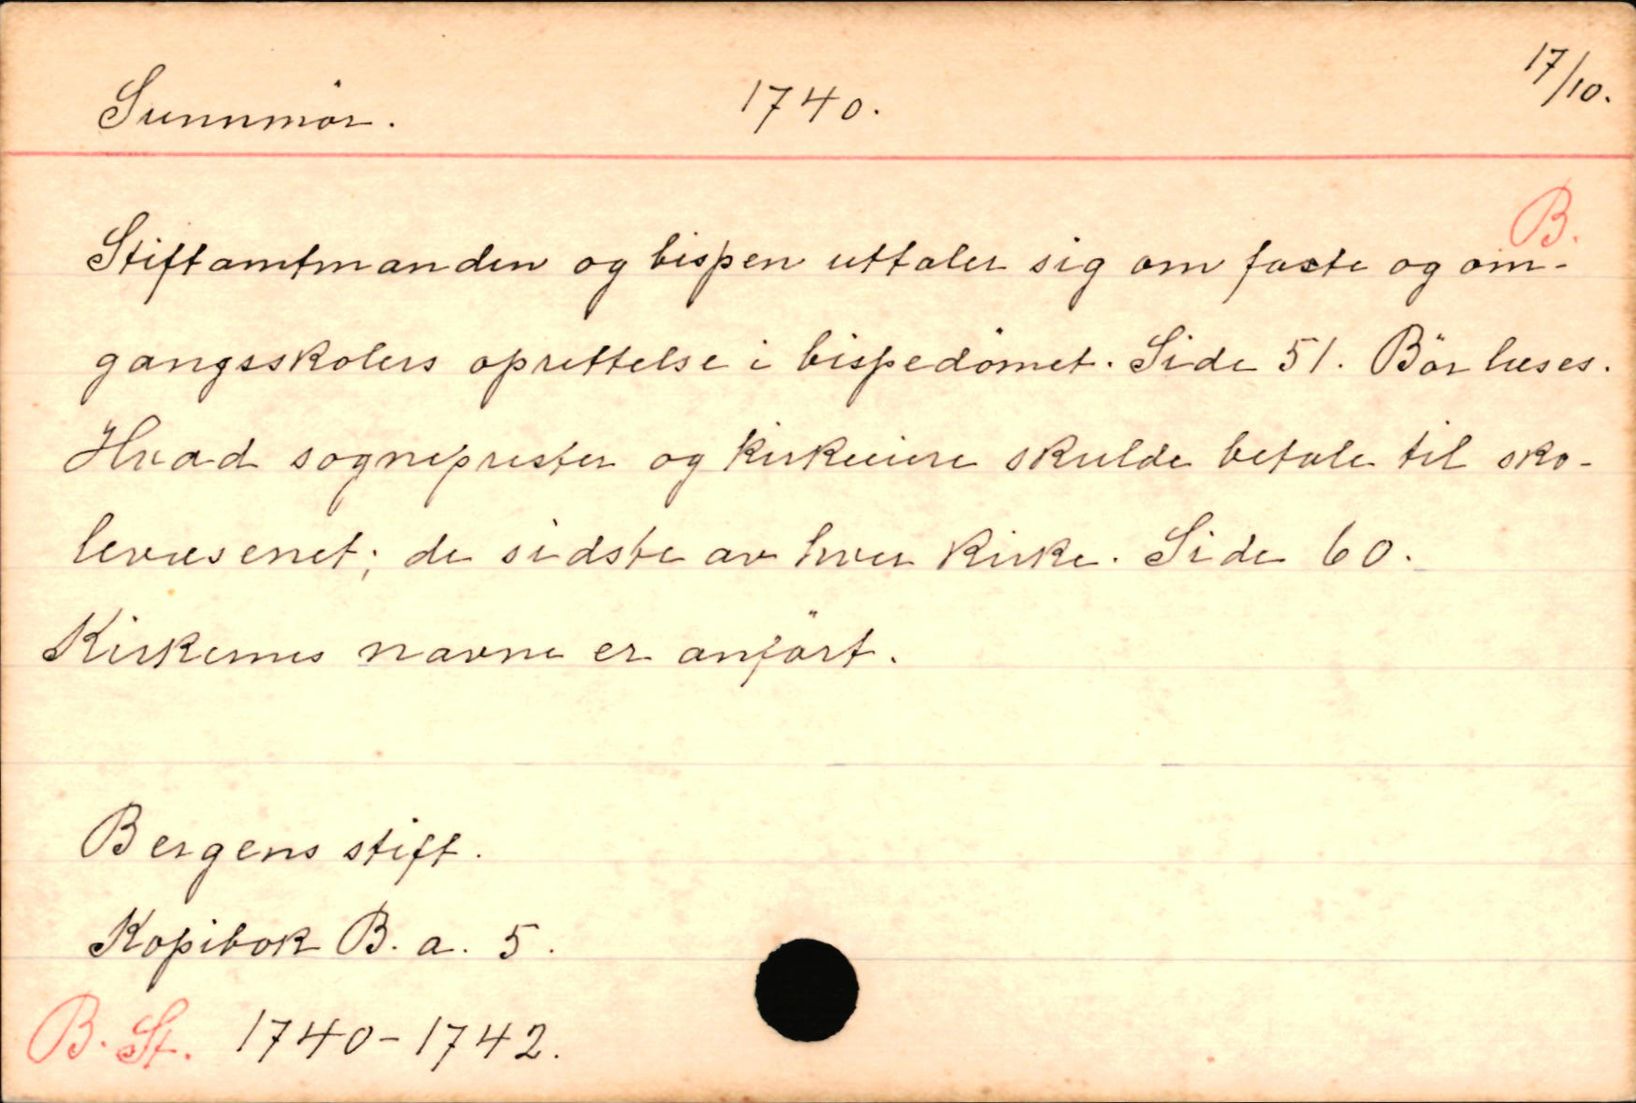 Sunnmör. 1740. 17/10.
B.
Stiftamtmanden og bispen uttaler sig om faste og om-
gangsskolers oprettelse i bispedömet. Side 51. Bör læses.
Hvad sogneprester og kirkeeiere skulde betale til sko-
levæsenet; de sidste av hver kirke. Side 60.
Kirkernes navne er anfört.
Bergens stift.
Kopibok B. a. 5.
B. St. 1740-1742.